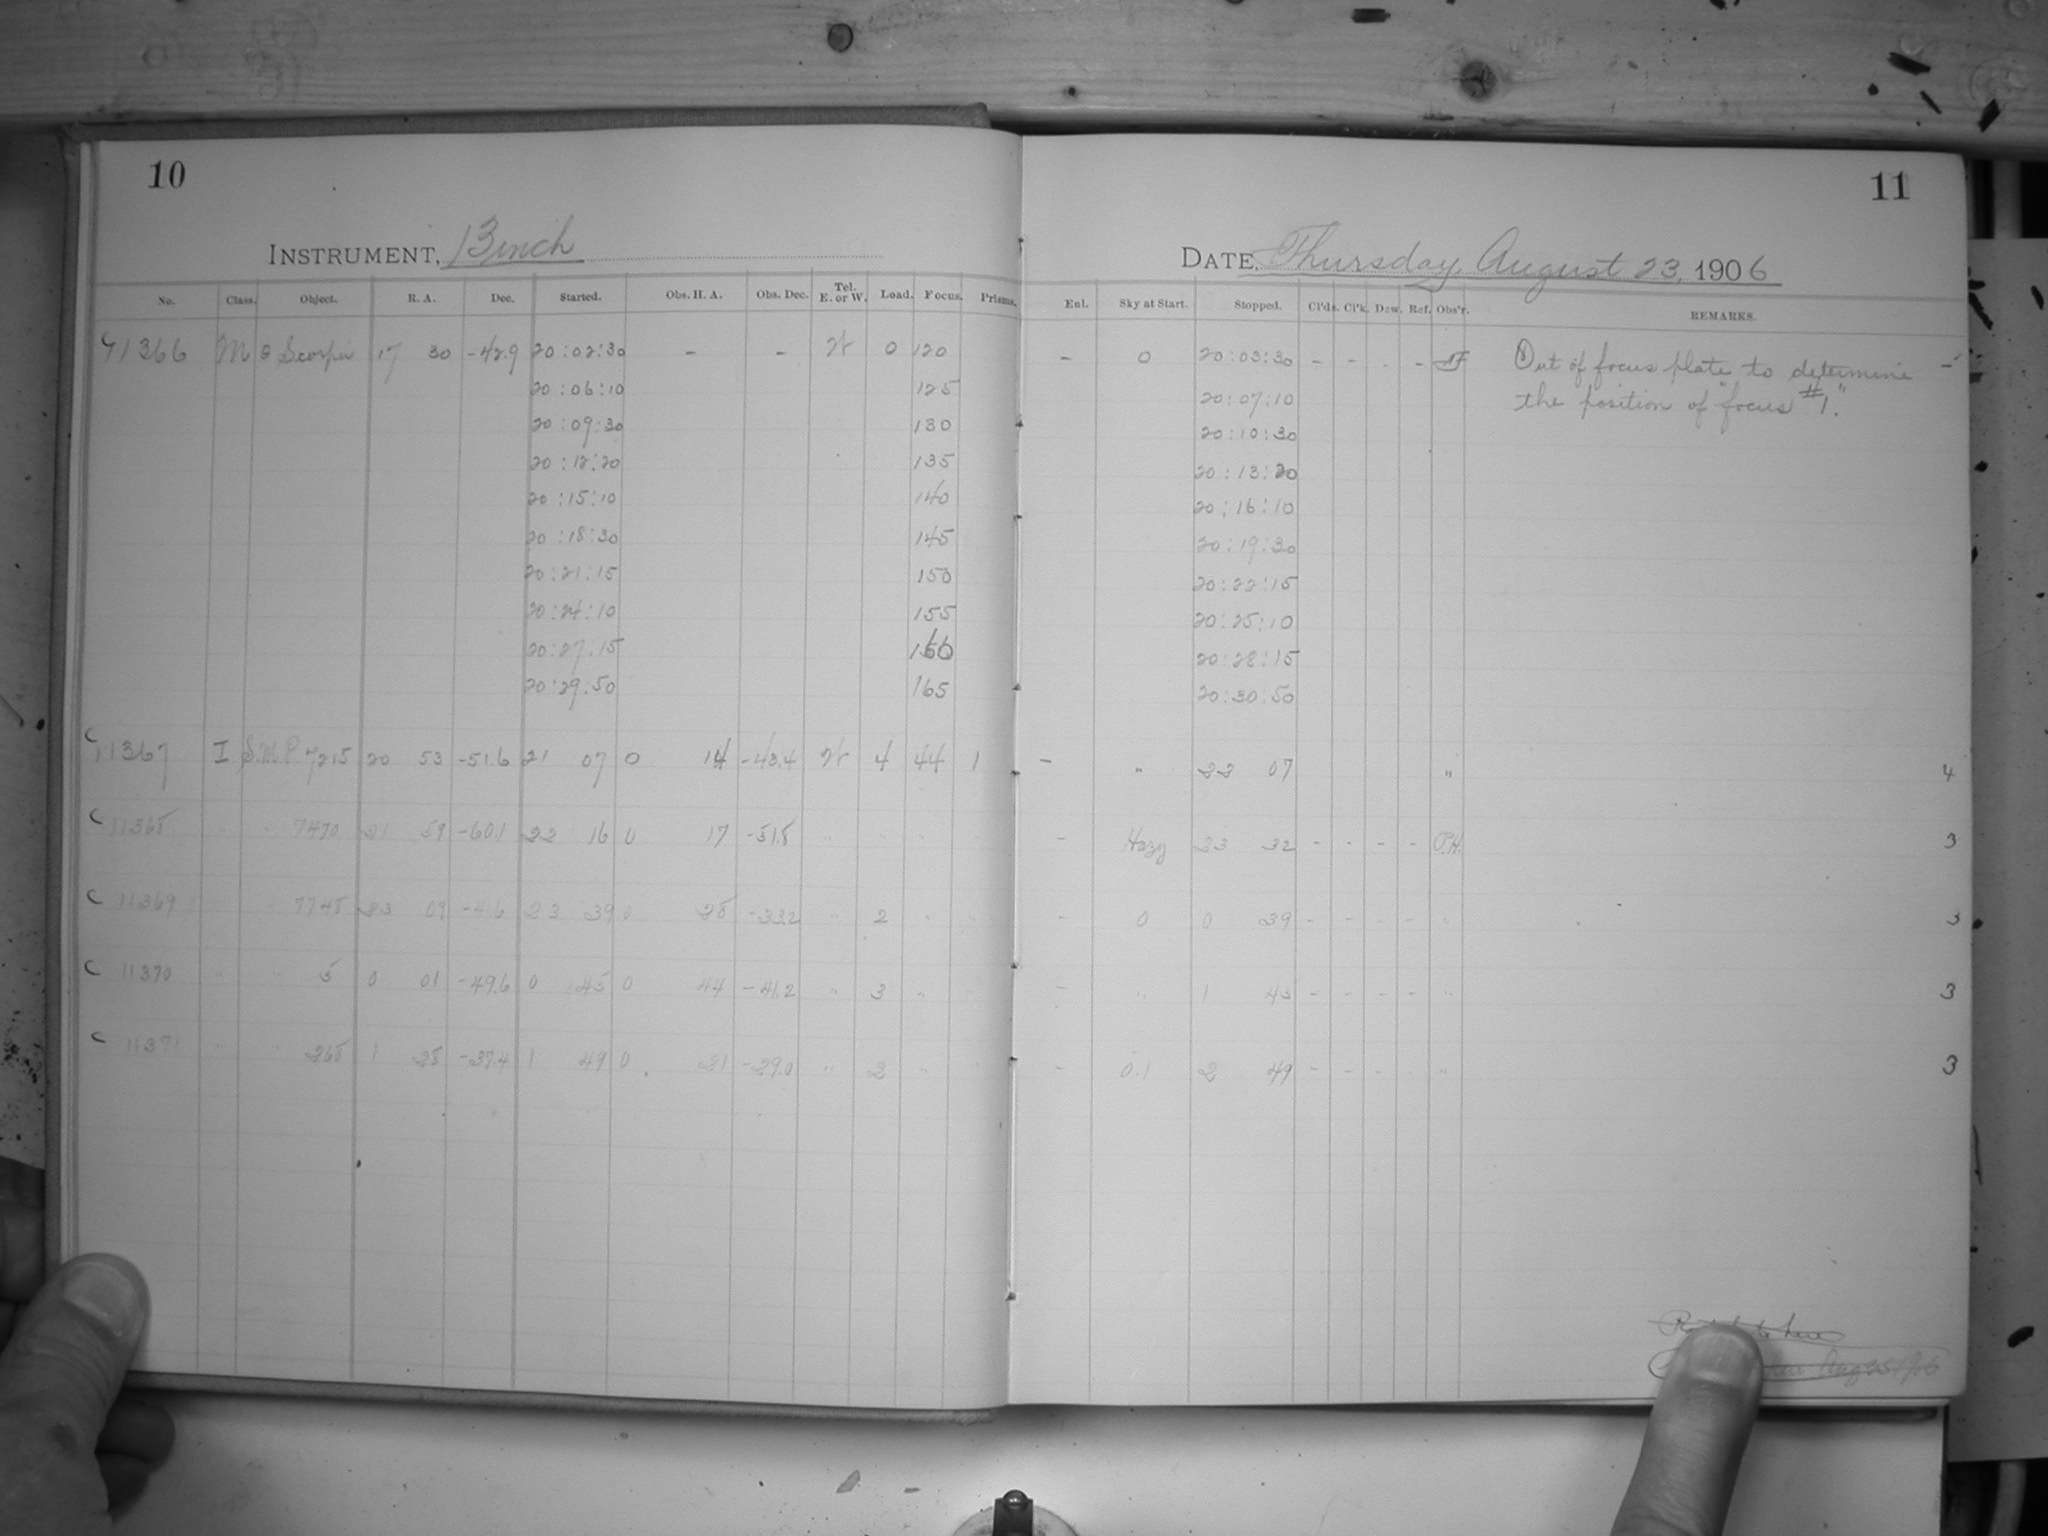 10
INSTRUMENT, 13 inch
No. Class. Object. R. A. Dec. Started. Obs. H. A. Obs. Dec. Tel. E. or W. Load. Focus. Prisms.
11366 M θ Scorpii 17 30 -42.9 20:02:30 - - W 0 120
20:06:10 125
20:09:30 130
20:12:20 135
20:15:10 140
20:18:30 145
20:21:15 150
20:24:10 155
20:27:15 160
20:29:50 165
11367 I S.M.P. 7215 20 53 -51.6 21 07 0 14 -43.4 W 4 44 1
11368 " " 7470 21 59 -60.1 22 16 0 17 -51.8 " " " "
11369 " " 7748 23 09 23 39 0 28 -33.2 " 2 " "
11370 " " 5 0 01 -49.6 0 45 0 44 -41.2 " 3 " "
11371 " " 268 1 28 -37.4 1 49 0 21 -29.0 " 2 "
11
DATE, Thursday, August 23, 1906
Enl. Sky at Start. Stopped. Cl'ds. Cl'k. Dew. Ref. Obs'r. REMARKS.
- 0 20:03:30 - - - - Out of focus plate to determine -
20:07:10 the position of "focus #1."
20:10:30
20:13:20
20:16:10
20:19:30
20:22:15
20:25:10
20:28:15
20:30:50
- " 22 07 " 4
- Hazy 23 32 - - - - P.H. 3
- 0 0 39 - - - - " 3
- " 1 45 - - - - " 3
- 0.1 2 49 - - - - " 3